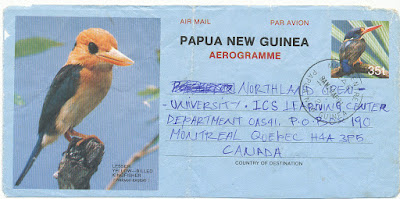 AIR MAIL PAR AVION
PAPUA NEW GUINEA
AEROGRAMME
35t
NORTHLAND OPEN-
-UNIVERSITY. ICS LEARNING CENTER
DEPARTMENT OAS41. P.O. BOX 190
MONTREAL QUEBEC H4A 3P5
CANADA
COUNTRY OF DESTINATION
LESSER
YELLOW-BILLED
KINGFISHER